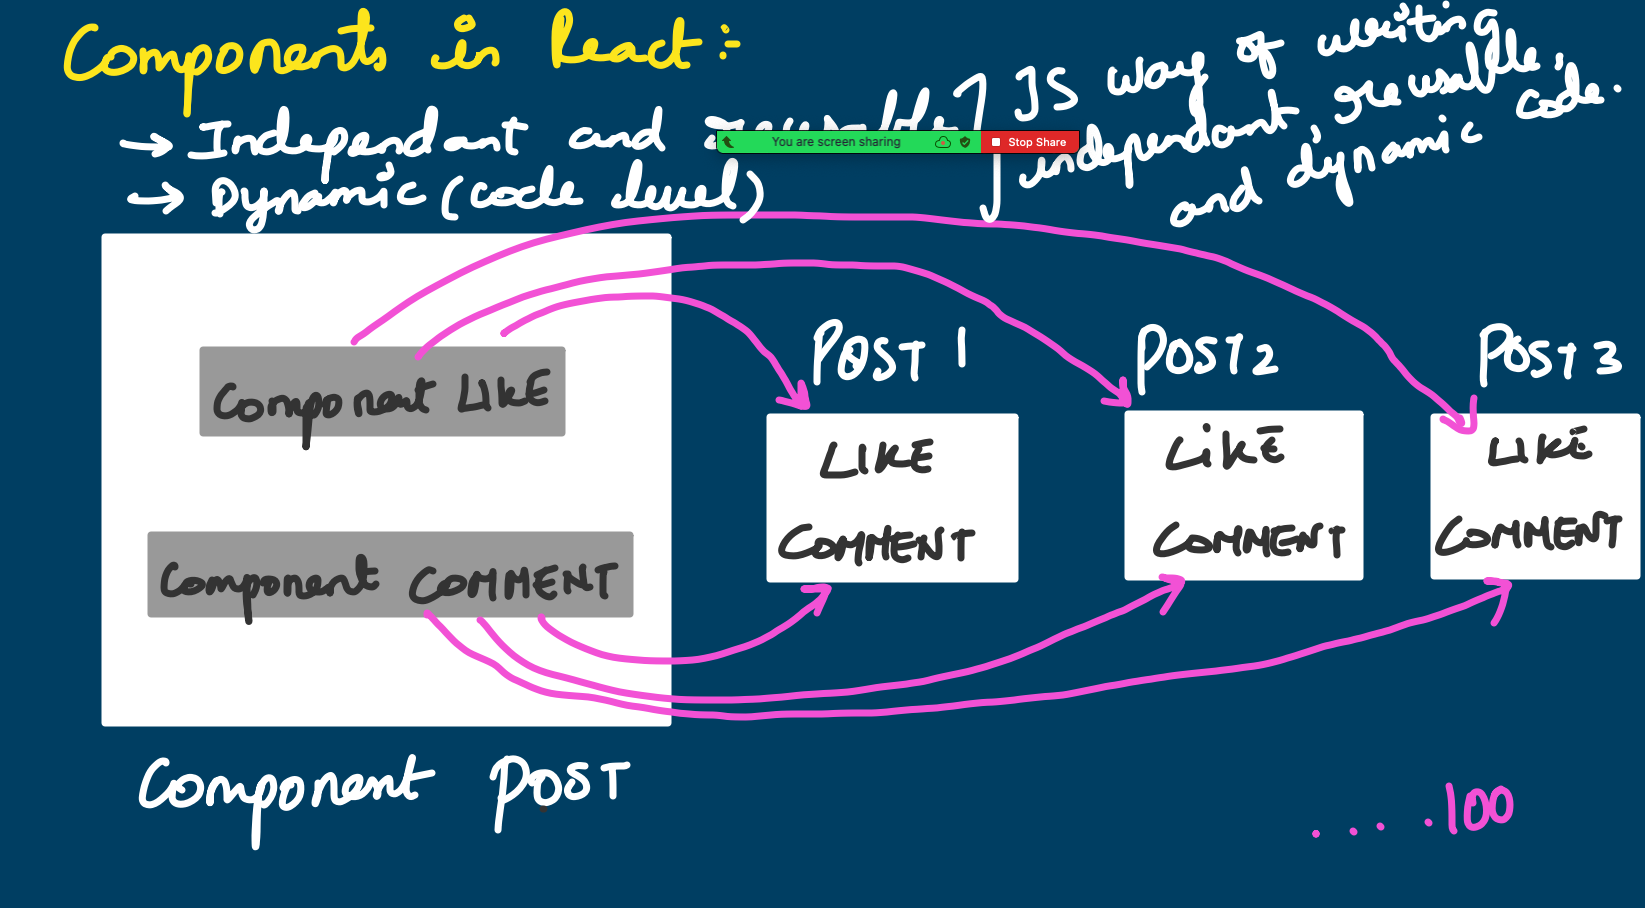 Components in React :-
→ Independant and
→ Dynamic (code level)
JS way of writing
independant, reusable,
and dynamic code.
You are screen sharing
Stop Share
Component LIKE
Component COMMENT
Component POST
POST 1
LIKE
COMMENT
POST 2
LiKE
COMMENT
POST 3
LIKE
COMMENT
. . . . 100